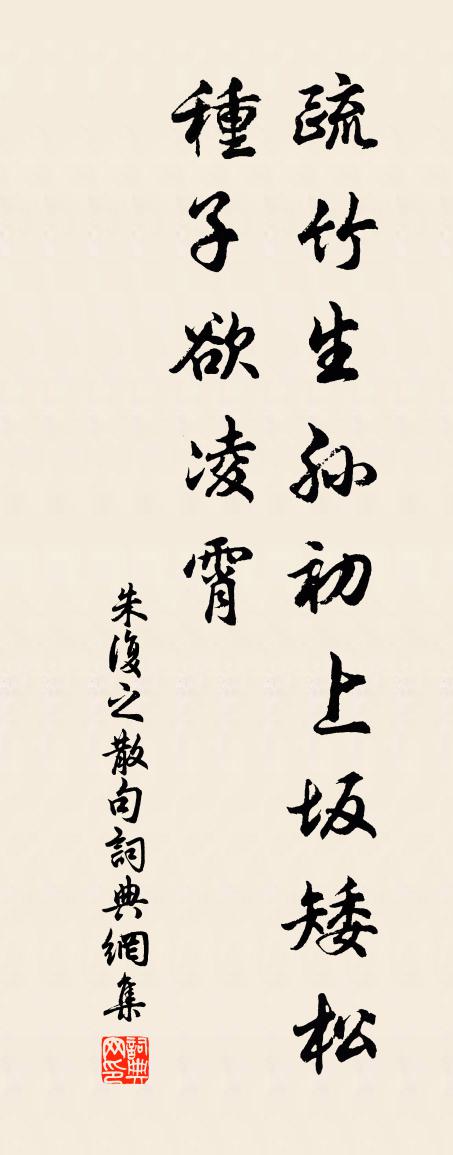 疏竹生孫初上坂矮松
種子欲凌霄
朱復之散句詞典網集
詞典网印